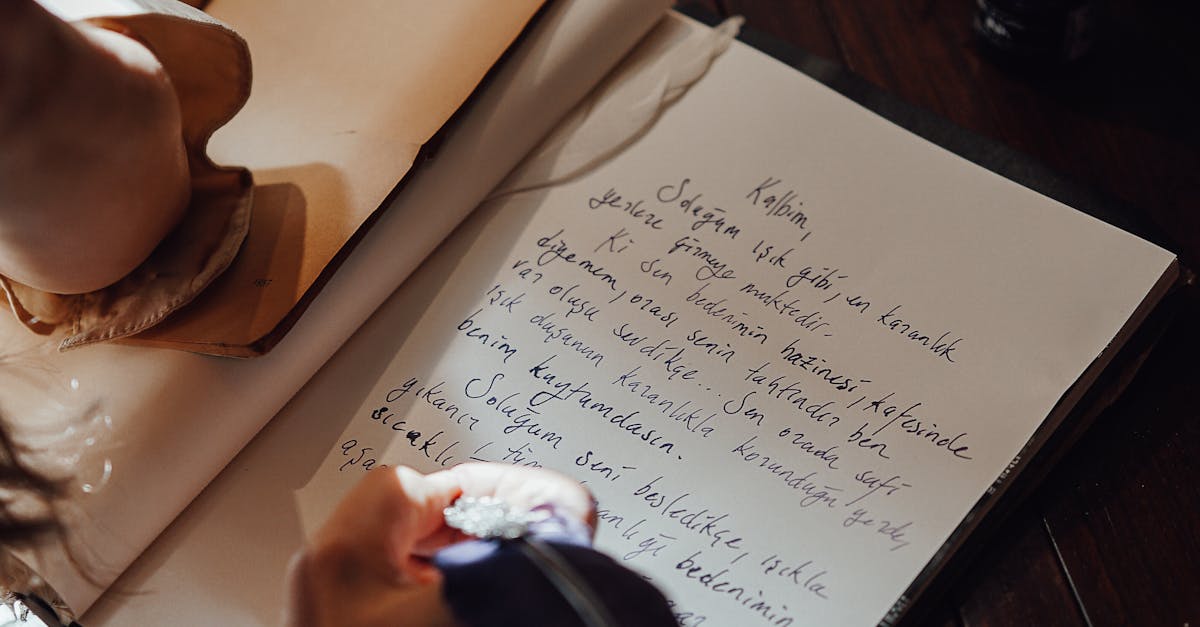 Kalbim,
Soluğum ışık gibi, en karanlık
yerlere girmeye muktedir.
Ki sen bedenimin hazinesi, kafesinde
diyemem, orası senin tahtındır ben
var oluşu sevdikçe... Sen orada safi
ışık karanlıkla korunduğu yerde,
benim kuytumdasın.
Soluğum seni besledikçe, ışıkla
yıkanır tüm bedenimin